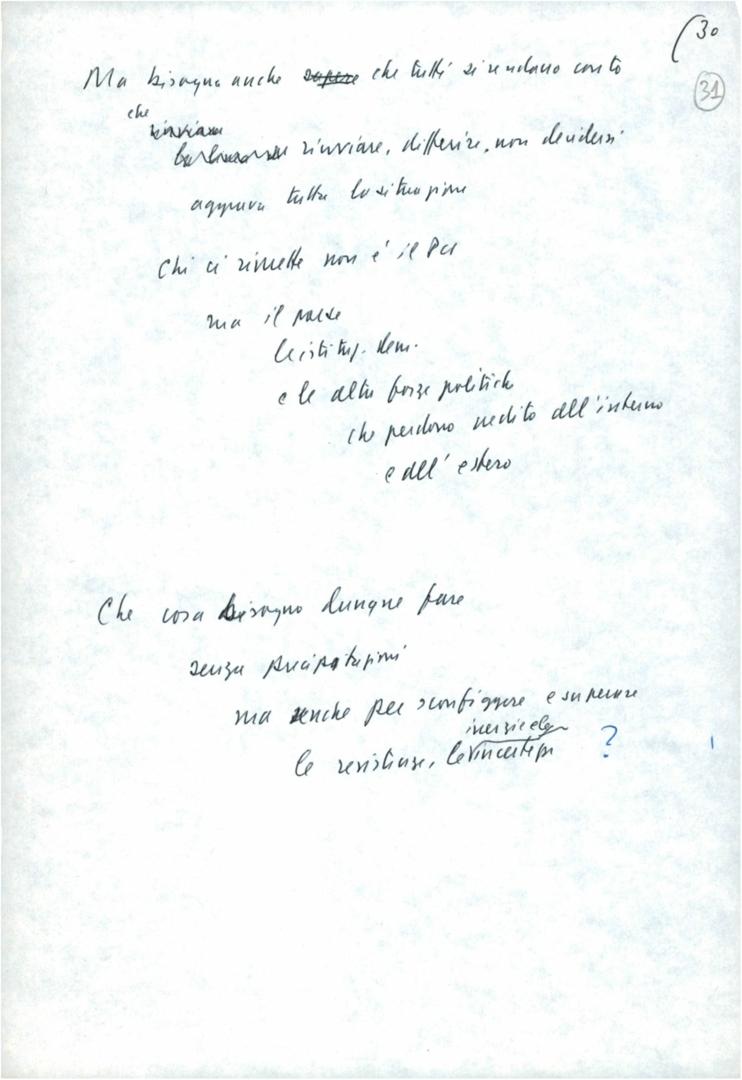 (30
31
Ma bisogna anche sapere che tutti si rendano conto
che
rinviare
rinviare, differire, non decidersi
aggrava tutta la situazione
Chi ci rimette non è il PCI
ma il paese
le istituz. dem.
e le altre forze politiche
che perdono credito all'interno
e all'estero
Che cosa bisogna dunque fare
senza precipitazioni
ma anche per sconfiggere e superare
inerzie e le
le resistenze, le incertezze ?